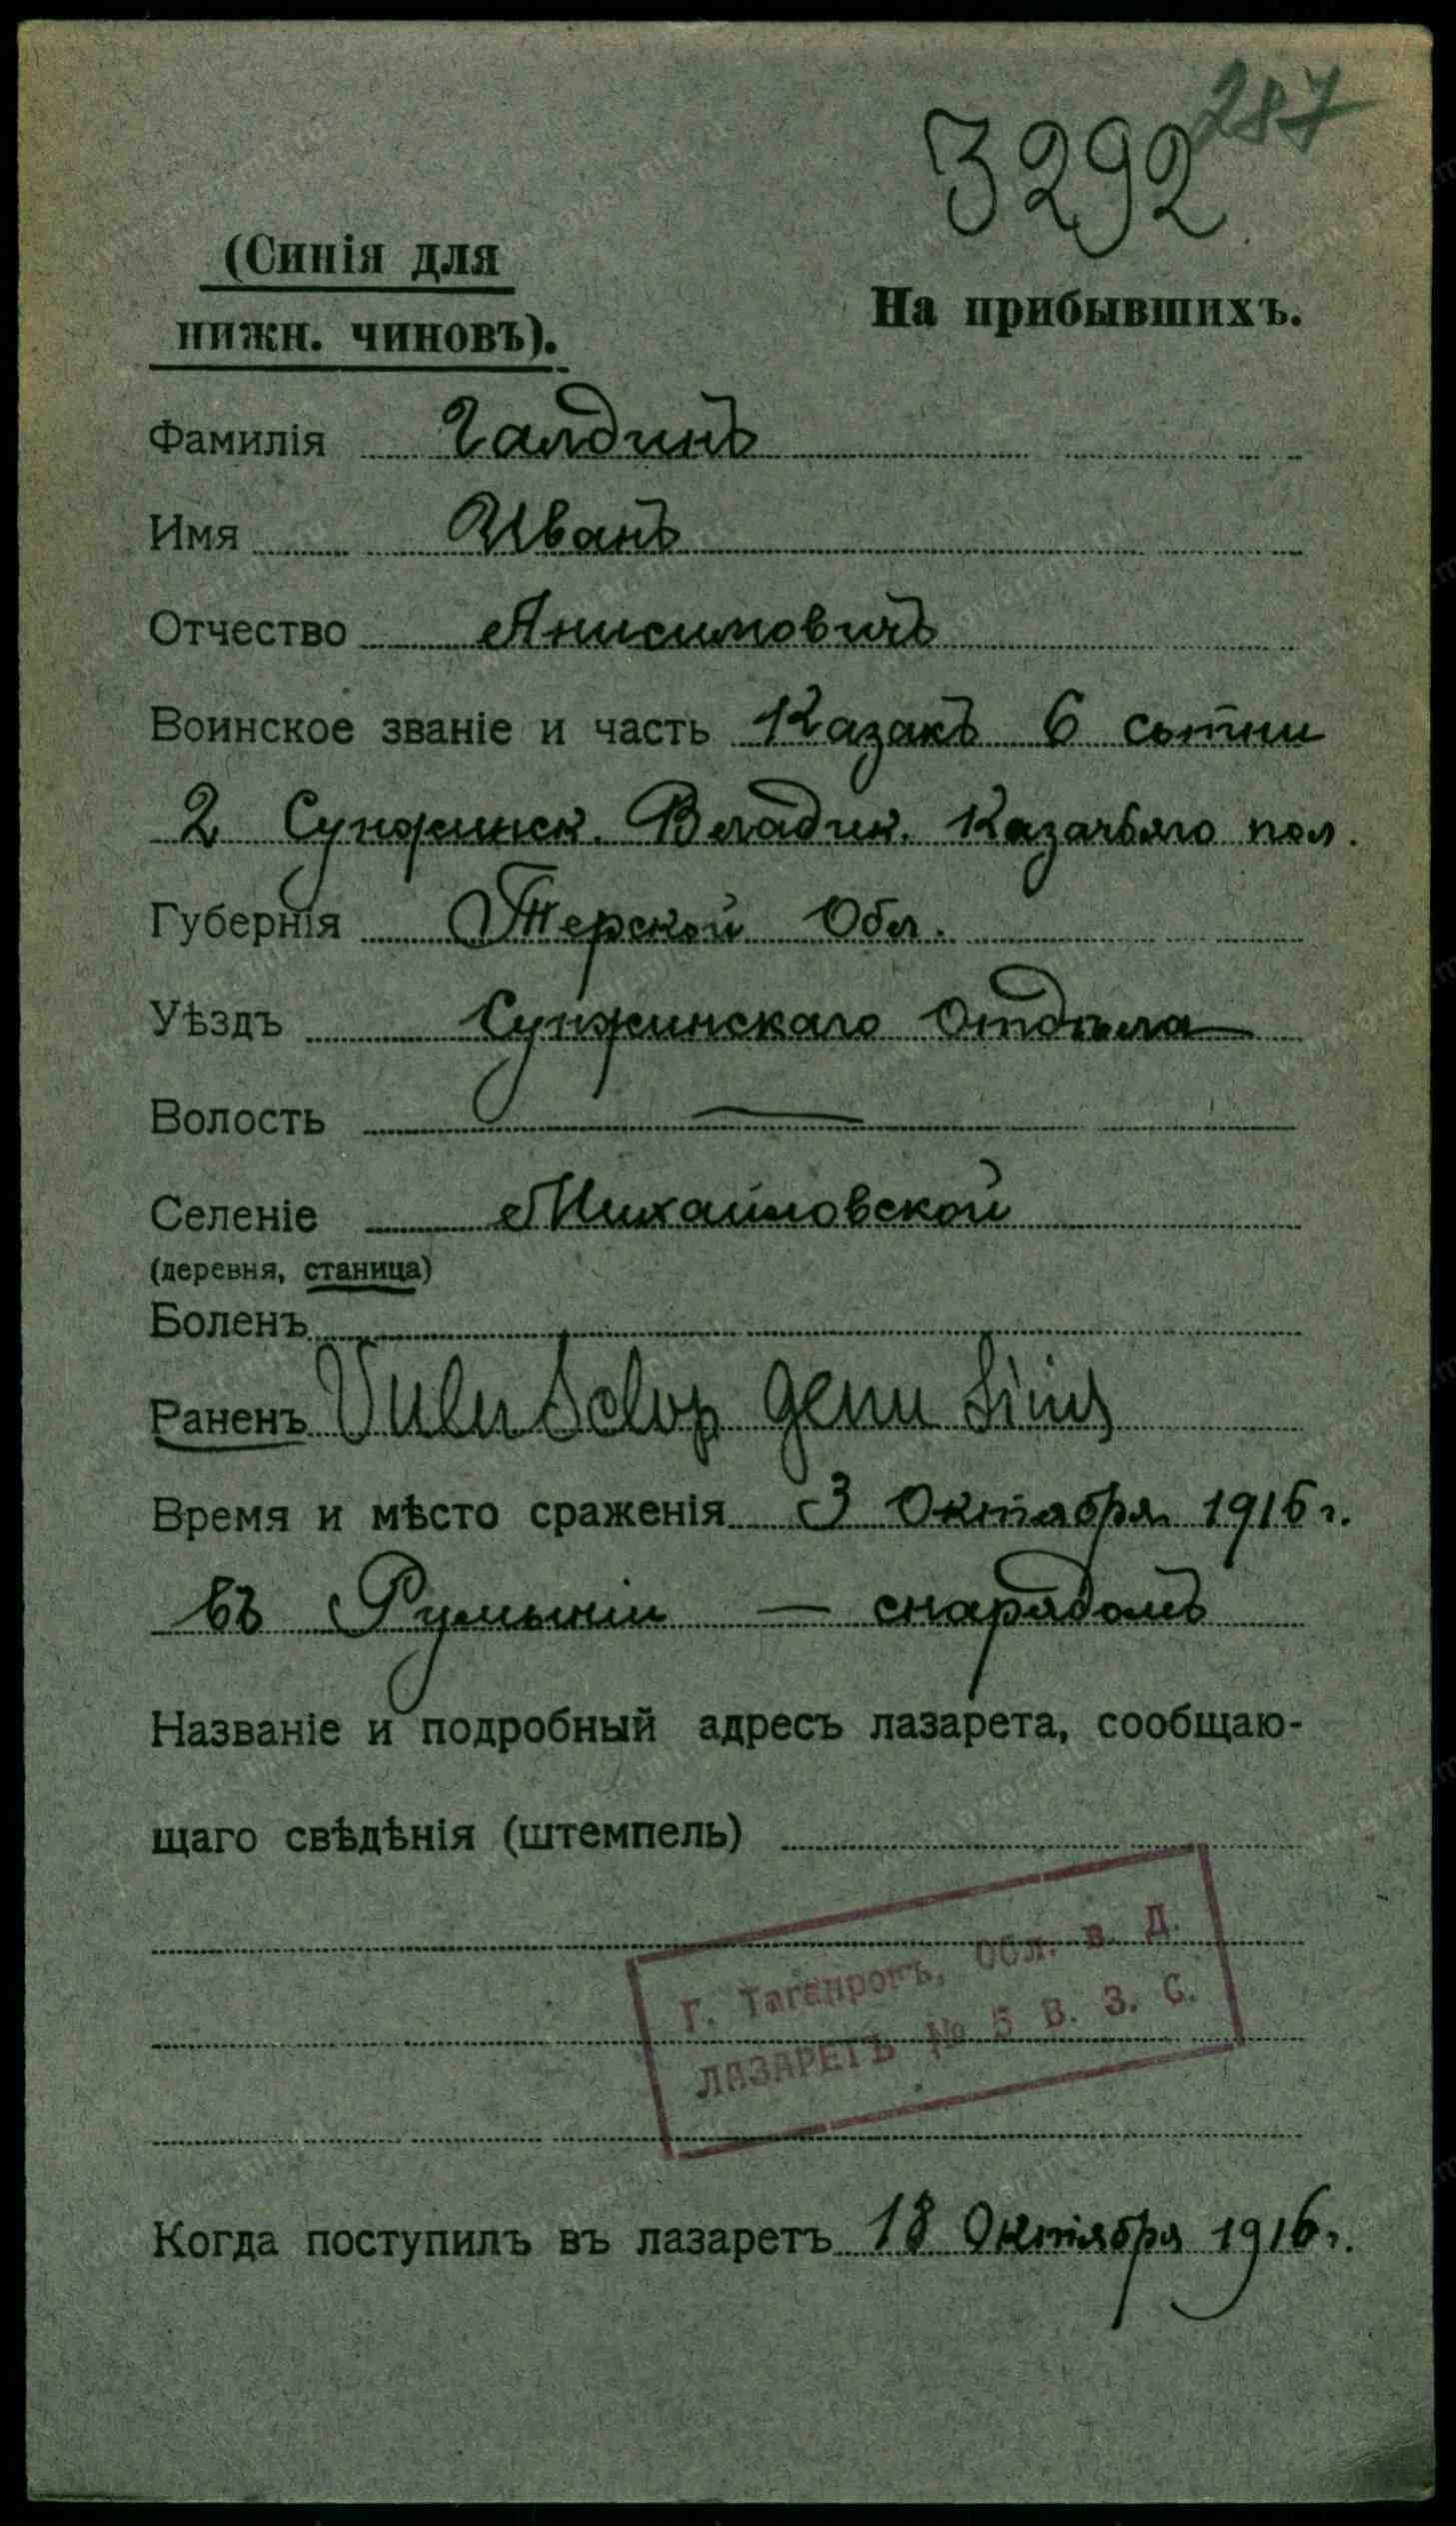 287
3292
(Синія для
нижн. чиновъ).
На прибывшихъ.
Фамилія Галдинъ
Имя Иванъ
Отчество Анисимовичъ
Воинское званіе и часть Казакъ 6 сотни
2 Сунжинск. Владик. Казачьяго пол.
Губернія Терской Обл.
Уѣздъ Сунжинскаго Отдѣла
Волость —
Селеніе Михайловской
(деревня, станица)
Боленъ
Раненъ Vuln Sclop genu Sinis
Время и мѣсто сраженія 3 Октября 1916 г.
въ Румыніи — снарядомъ
Названіе и подробный адресъ лазарета, сообщаю-
щаго свѣдѣнія (штемпель)
Г. Таганрогъ, Обл. В. Д.
ЛАЗАРЕТЪ № 5 В. З. С.
Когда поступилъ въ лазаретъ 18 Октября 1916 г.